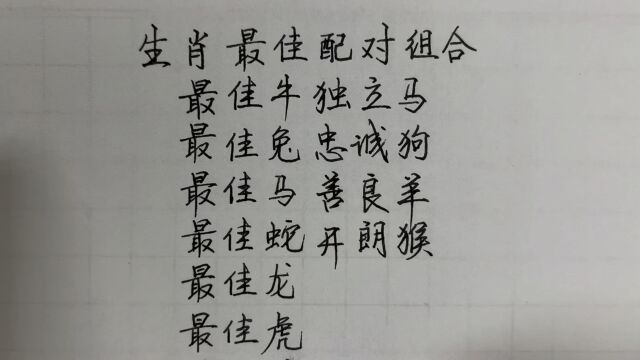 生肖最佳配对组合
最佳牛独立马
最佳兔忠诚狗
最佳马善良羊
最佳蛇开朗猴
最佳龙
最佳虎